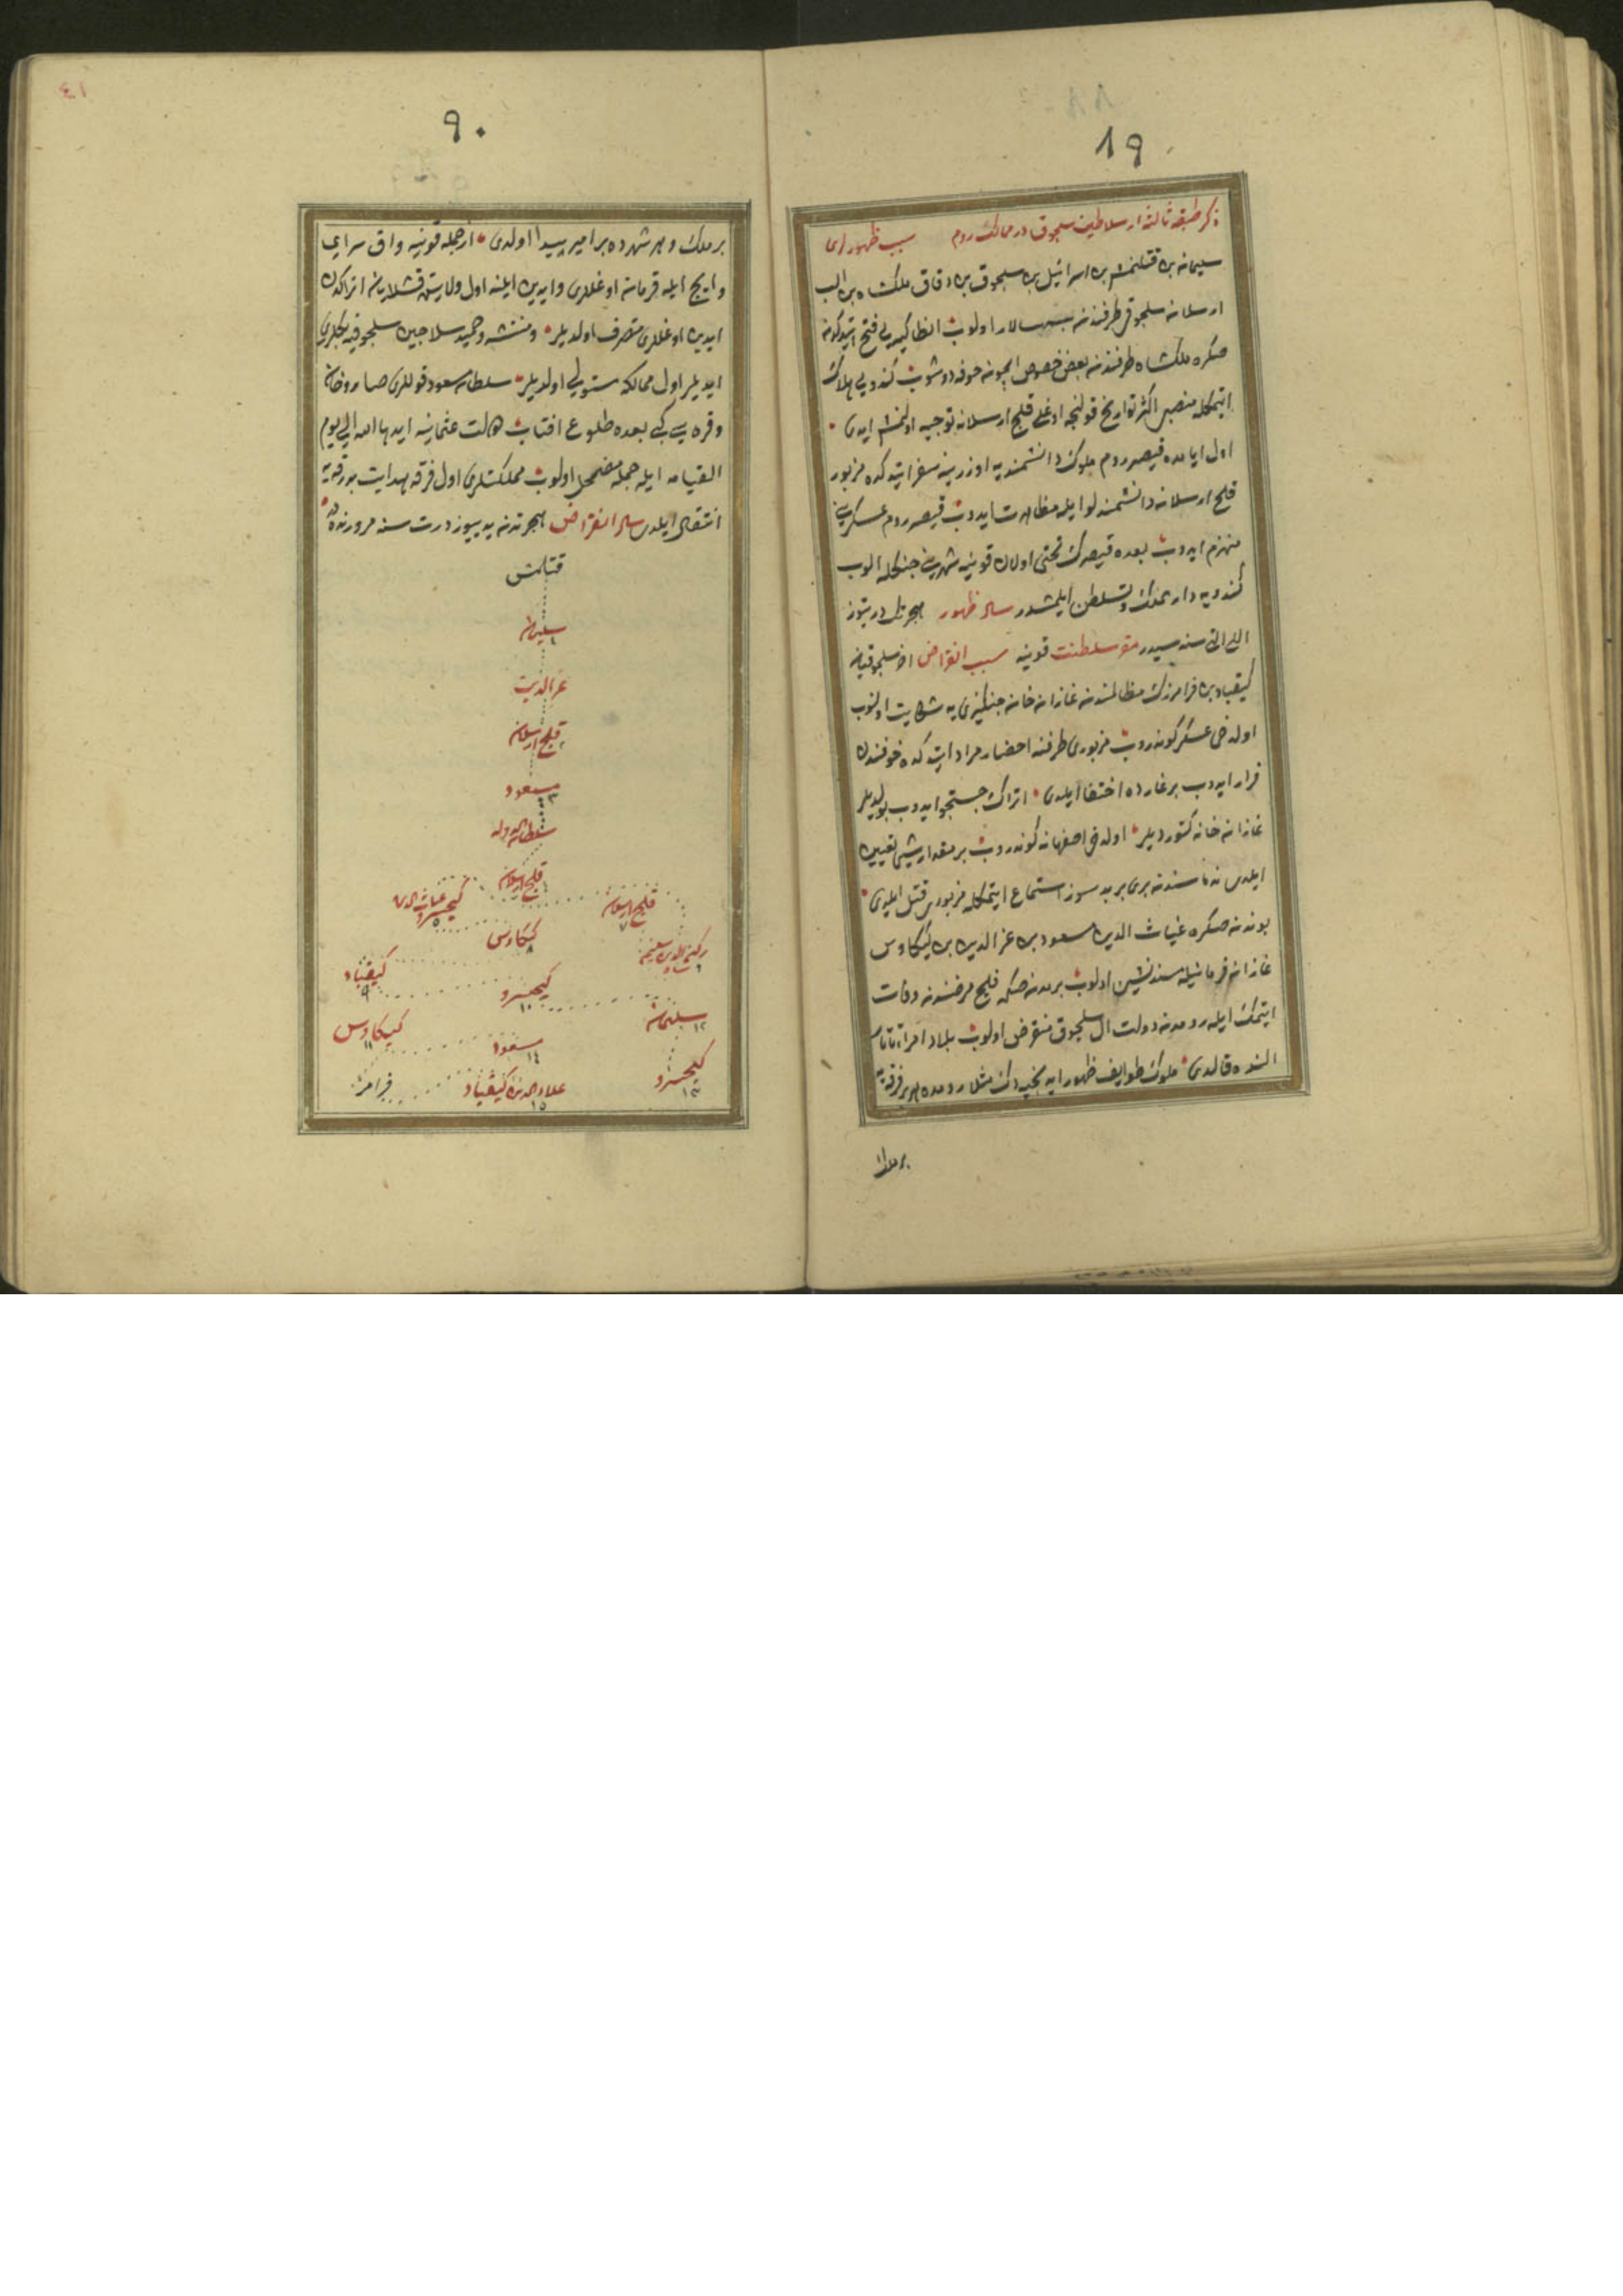 ٨٩
ذكر طبقه ثالثه از سلاطين سلجوق در ممالك روم سبب ظهورلرى
سليمان بن قتلمش بن اسرائيل بن سلجوق بن دقاق ملكشاه بن الب
ارسلان سلجوقى طرفندن سپهسالار اولوب انطاكيه يى فتح ايتدكدن
صكره ملكشاه طرفندن بعض خصوص ايچون خوفه دوشوب كندويى هلاك
ايتمكله منصبى اكثر تواريخ قولنجه اوغلى قليج ارسلانه توجيه اولنمش ايدى
اول ايامده قيصر روم ملوك دانشمنديه اوزرينه سفر ايتدكده مزبور
قليج ارسلان دانشمندلو ايله مظاهرت ايدوب قيصر روم عسكرينى
منهزم ايدوب بعده قيصرك تختى اولان قونيه شهرينى جنكله الوب
كندويه دار الملك وتسلطن ايلمشدر سال ظهور هجرتك درتيوز
اللى التى سنه سيدر مقر سلطنت قونيه سبب انقراض اخر سلجوقيان
كيقباد بن فرامرزك مظالمندن غازان خان جنكيزى يه شكايت اولنوب
اولدخى عسكر كوندروب مزبورى طرفنه احضار مراد ايتدكده خوفندن
فرار ايدوب بر غارده اختفا ايلدى اتراك جستجو ايدوب بولديلر
غازان خانه كتورديلر اولدخى اصفهانه كوندروب بر مقدار شى تعيين
ايلدى ندماسندن برى بر بد سوز استماع ايتمكله مزبورى قتل ايلدى
بوندن صكره غياث الدين مسعود بن عز الدين بن كيكاوس
غازان فرمانيله مسندنشين اولوب بر مدتدن صكره فلج مرضندن وفات
ايتمك ايله رومدن دولت ال سلجوق منقرض اولوب بلاد امراء تاتار
النده قالدى ملوك طوايف ظهور ايدنجيه دك مثلا رومده هر بر فرقه يه
بر ملك
٩٠
بر ملك و هر شهرده بر امير پيدا اولدى از جمله قونيه واق سراى
وايچ ايله قرمان اوغللرى وايدين ايلنه اول ولايتى قشلايان اتراكدن
ايدين اوغللرى متصرف اولديلر ومنتشه وحميد سلاجين سلجوقيه بكلرى
ايديلر اول ممالكه مستولى اولديلر سلطان مسعود قوللرى صاروخان
وقره سى كبى بعده طلوع افتاب دولت عثمانيه ايدها الله الى يوم
القيامه ايله جمله مضمحل اولوب مملكتلرى اول فرقه هدايت بدرقه يه
انتقال ايلدى سال انقراض هجرتدن يديوز درت سنه مرورنده در
قتلمش
سليمان ١
عز الدين
قليج ارسلان ٢
مسعود ٣
سلطان الدوله
قليج ارسلان ٤
غياث الدين كيخسرو ٥
قليج ارسلان ٧
ركن الدين سليمان شاه ٦
كيكاوس ٨
كيقباد ٩
كيخسرو ١٠
سليمان ١٢
كيكاوس ١١
مسعود ١٤
كيخسرو ١٣
علاء الدين كيقباد ١٥
فرامرز